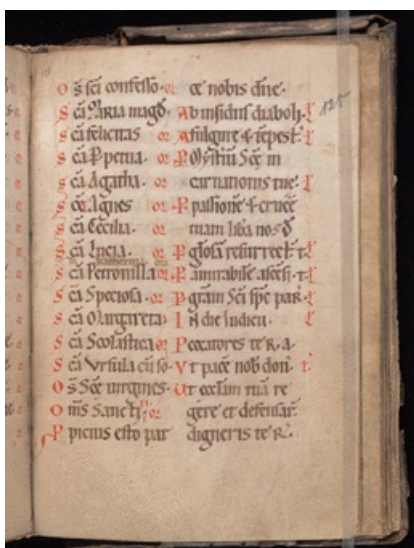 125
O s̄ sc̄i confesso. or
S c̄a Maria magd̄. or
S c̄a felicitas or
S c̄a Ꝑpetua. or
S c̄a Agatha. or
S c̄a Agnes or
S c̄a Cecilia. or
S c̄a Lucia. or
S c̄a Petronilla. or
S c̄a Speciosa. or
S c̄a Margareta. or
S c̄a Scolastica. or
S c̄a Vrsula cū so.
O s̄ Sc̄e uirgines. or
O m̄s Sancti. or
P picius esto par
ce nobis dn̄e.
A b insidiis diaboli. l'
A fulgure & tēpest. l'
P Mystiū Sc̄e in
carnationis tue. l'
P passionē & crucē
tuam liba nos d̄
P gl̄osā resurrect. t.
P amirabilē ascēs. t.
P grām Sc̄i sp̄c par. l'
I n die Iudicii. l'
P eccatores te R. a
V t pacē nob don̄ t.
V t eccl̄am tuā re
gere et defensar̄.
digneris te R.